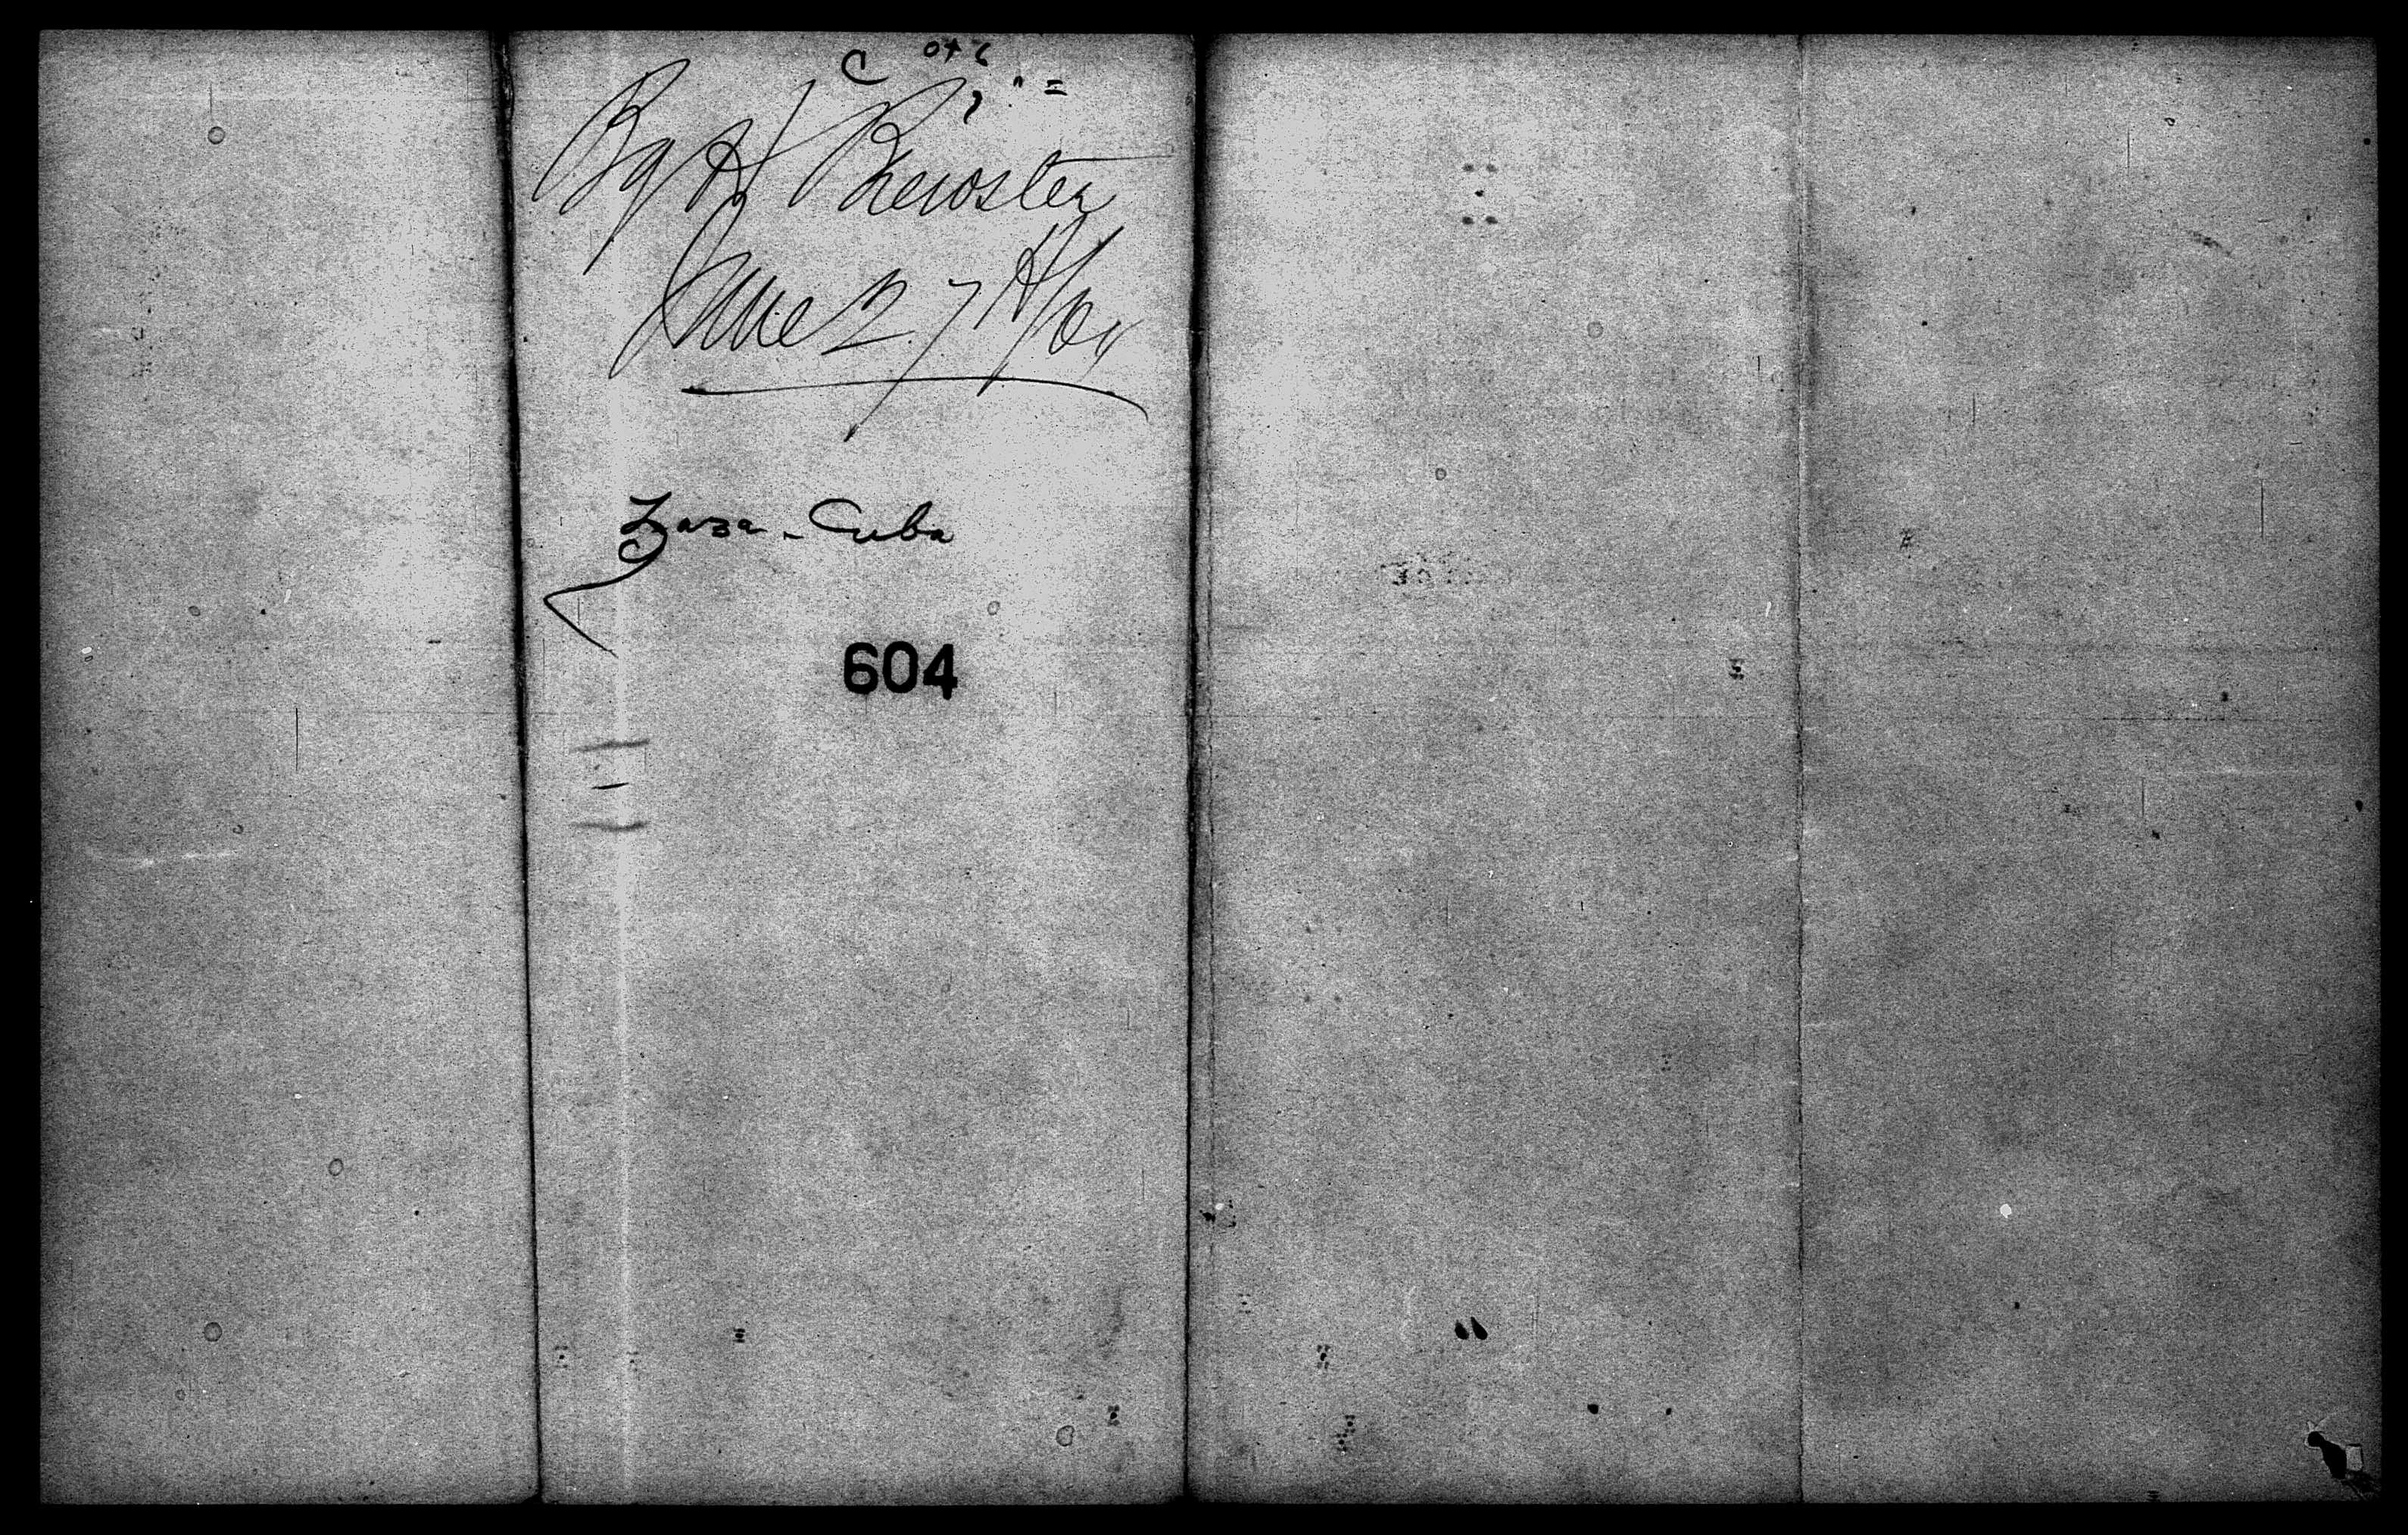 Bq H Brewster
June 27th/00
Zaza - Cuba
604